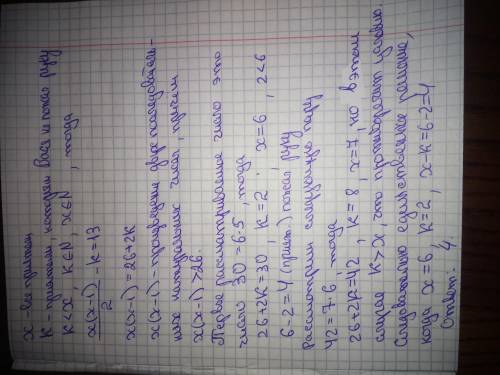 x - все приятели
k - приятели, которым Вася и пожал руку
k<x, k∈N, x∈N, тогда
x(x-1)/2 - k = 13
x(x-1) = 26+2k
x(x-1) - произведение двух последователь-
ных натуральных чисел, причём
x(x-1) > 26.
Первое рассматриваемое число это
число 30 = 6·5, тогда
26+2k=30, k=2, x=6, 2<6
6-2=4 (прият.) пожал руку
Рассмотрим следующую пару
42=7·6, тогда
26+2k=42, k=8, x=7, но в этом
случае k>x, что противоречит условию.
Следовательно единственное решение,
когда x=6, k=2, x-k=6-2=4
Ответ: 4.